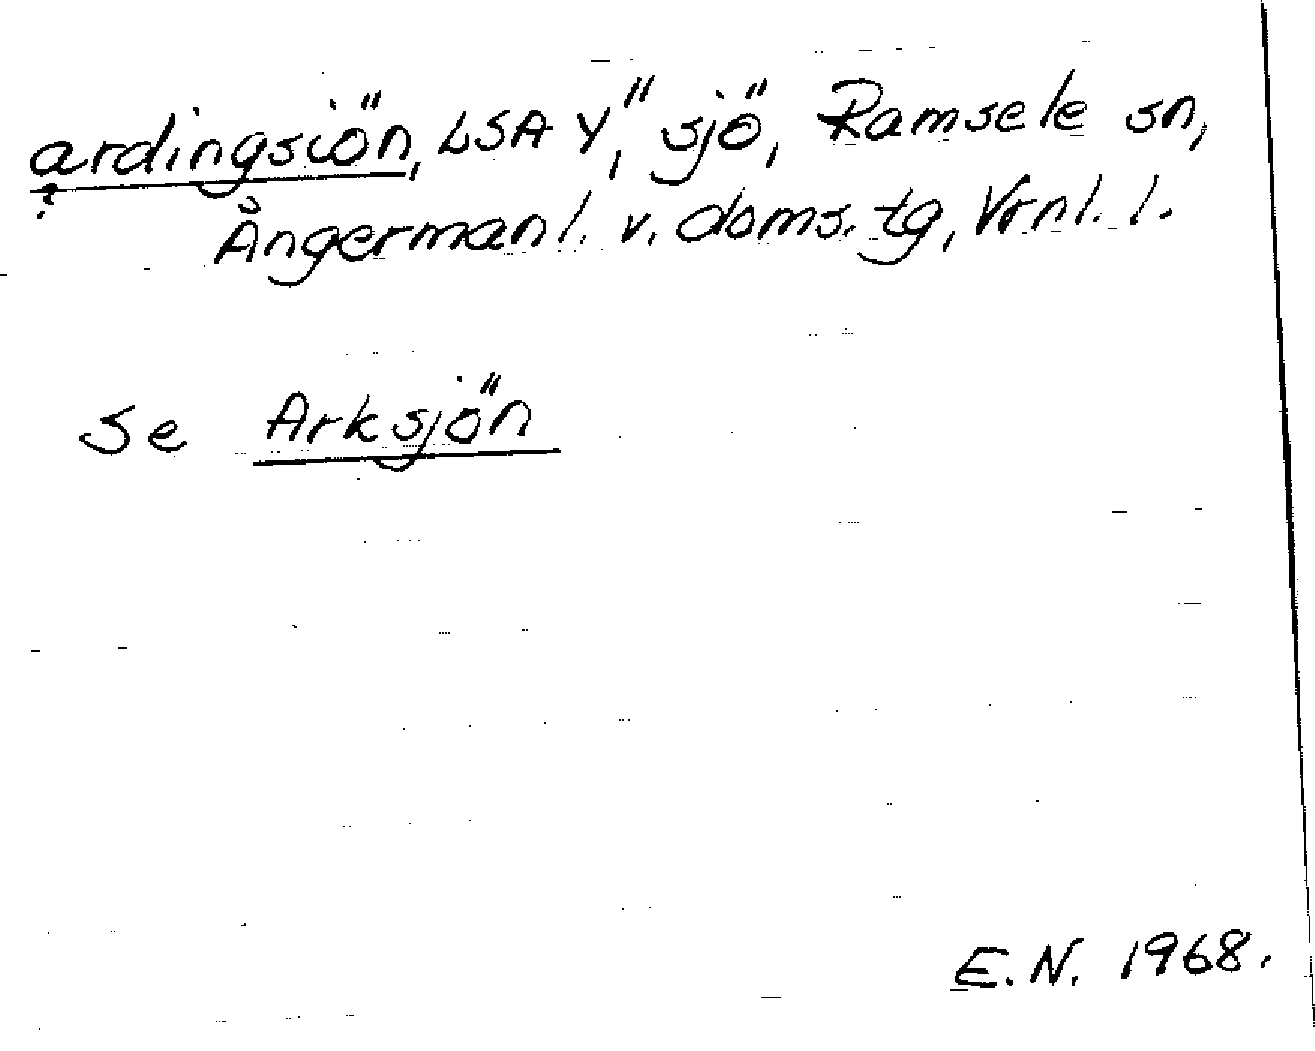 ardingsiön, LSA Y", sjö, Ramsele sn,
?
Ångermanl. v. doms. tg, Vrnl. l.
Se Arksjön
E.N. 1968.